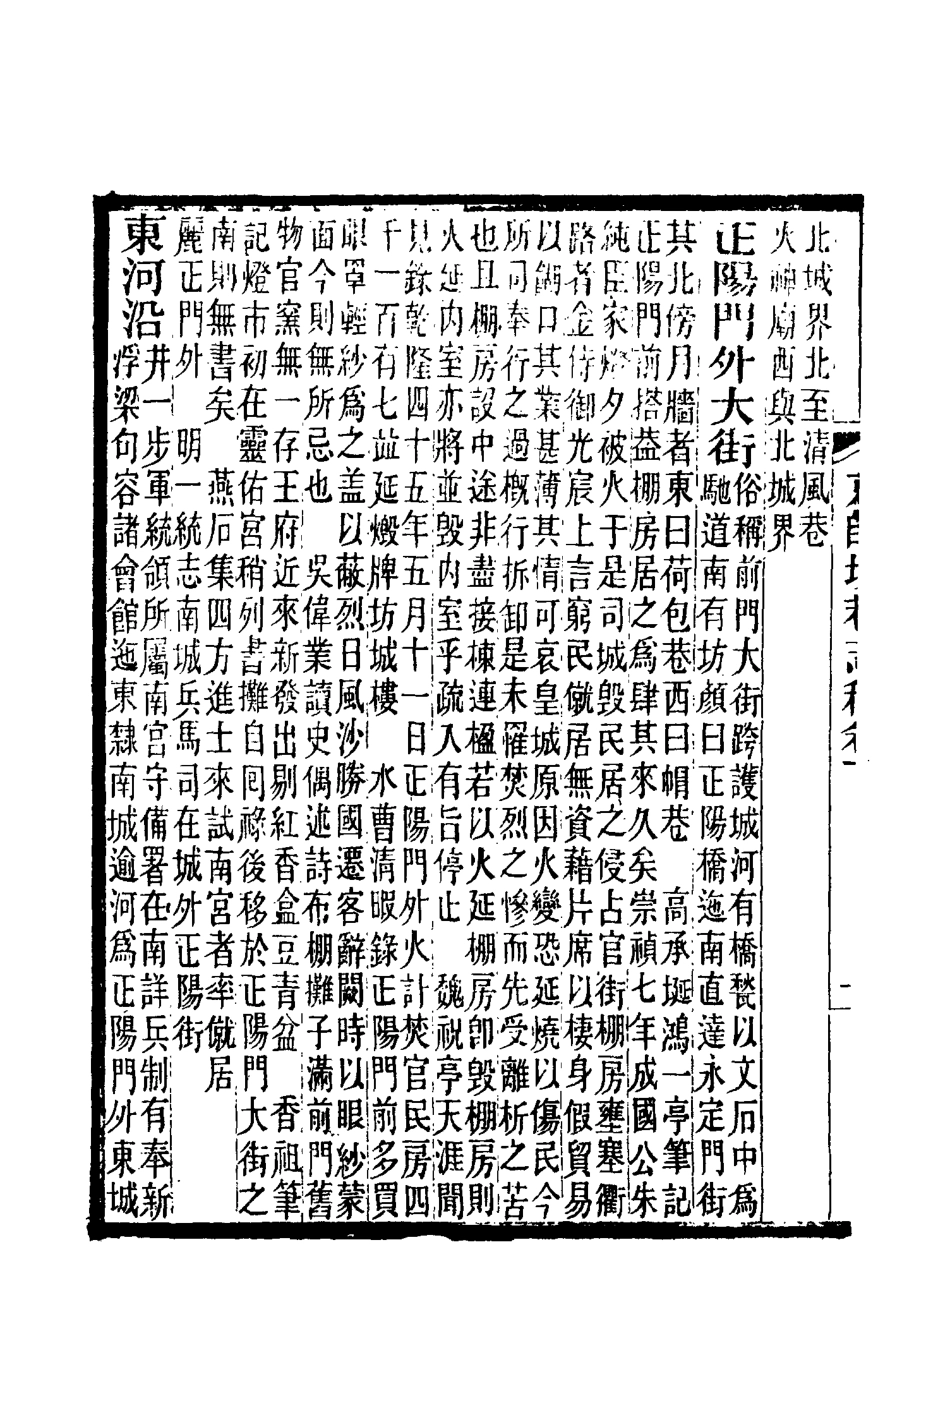 北城界北至清風巷
火神廟西與北城界
正陽門外大街俗稱前門大街跨護城河有橋甃以文石中爲
馳道南有坊顏曰正陽橋迤南直達永定門街
其北傍月牆者東曰荷包巷西曰帽巷　高承埏鴻一亭筆記
正陽門前搭葢棚房居之爲肆其來久矣崇禎七年成國公朱
純臣家燈夕被火于是司城毀民居之侵占官街棚房壅塞衢
路者金侍御光宸上言窮民僦居無資藉片席以棲身假貿易
以餬口其業甚薄其情可哀皇城原因火變恐延燒以傷民今
所司奉行之過概行拆卸是未罹焚烈之慘而先受離析之苦
也且棚房設中途非盡接棟連楹若以火延棚房卽毀棚房則
火延內室亦將並毀內室乎疏入有旨停止　魏祝亭天涯聞
見錄乾隆四十五年五月十一日正陽門外火計焚官民房四
千一百有七並延燬牌坊城樓　水曹清暇錄正陽門前多買
眼罩輕紗爲之盖以蔽烈日風沙勝國遷客辭闕時以眼紗蒙
面今則無所忌也　吳偉業讀史偶述詩布棚攤子滿前門舊
物官窯無一存王府近來新發出剔紅香盒豆青盆　香祖筆
記燈市初在靈佑宮稍列書攤自囘祿後移於正陽門大街之
南則無書矣　燕石集四方進士來試南宮者率僦居
麗正門外　明一統志南城兵馬司在城外正陽街
東河沿井一步軍統領所屬南宮守備署在南詳兵制有奉新
浮梁句容諸會館迤東隸南城逾河爲正陽門外東城
京師坊巷志稿卷下
二